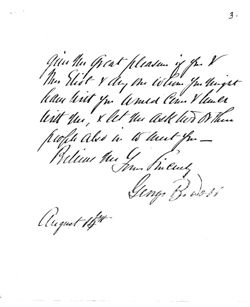 3.
give me great pleasure if you &
Mrs. Eliot & any one whom you might
have with you would come & lunch
with me, & let me ask two or three
people also in to meet you —
Believe me
Yours Sincerely
George
August 14th